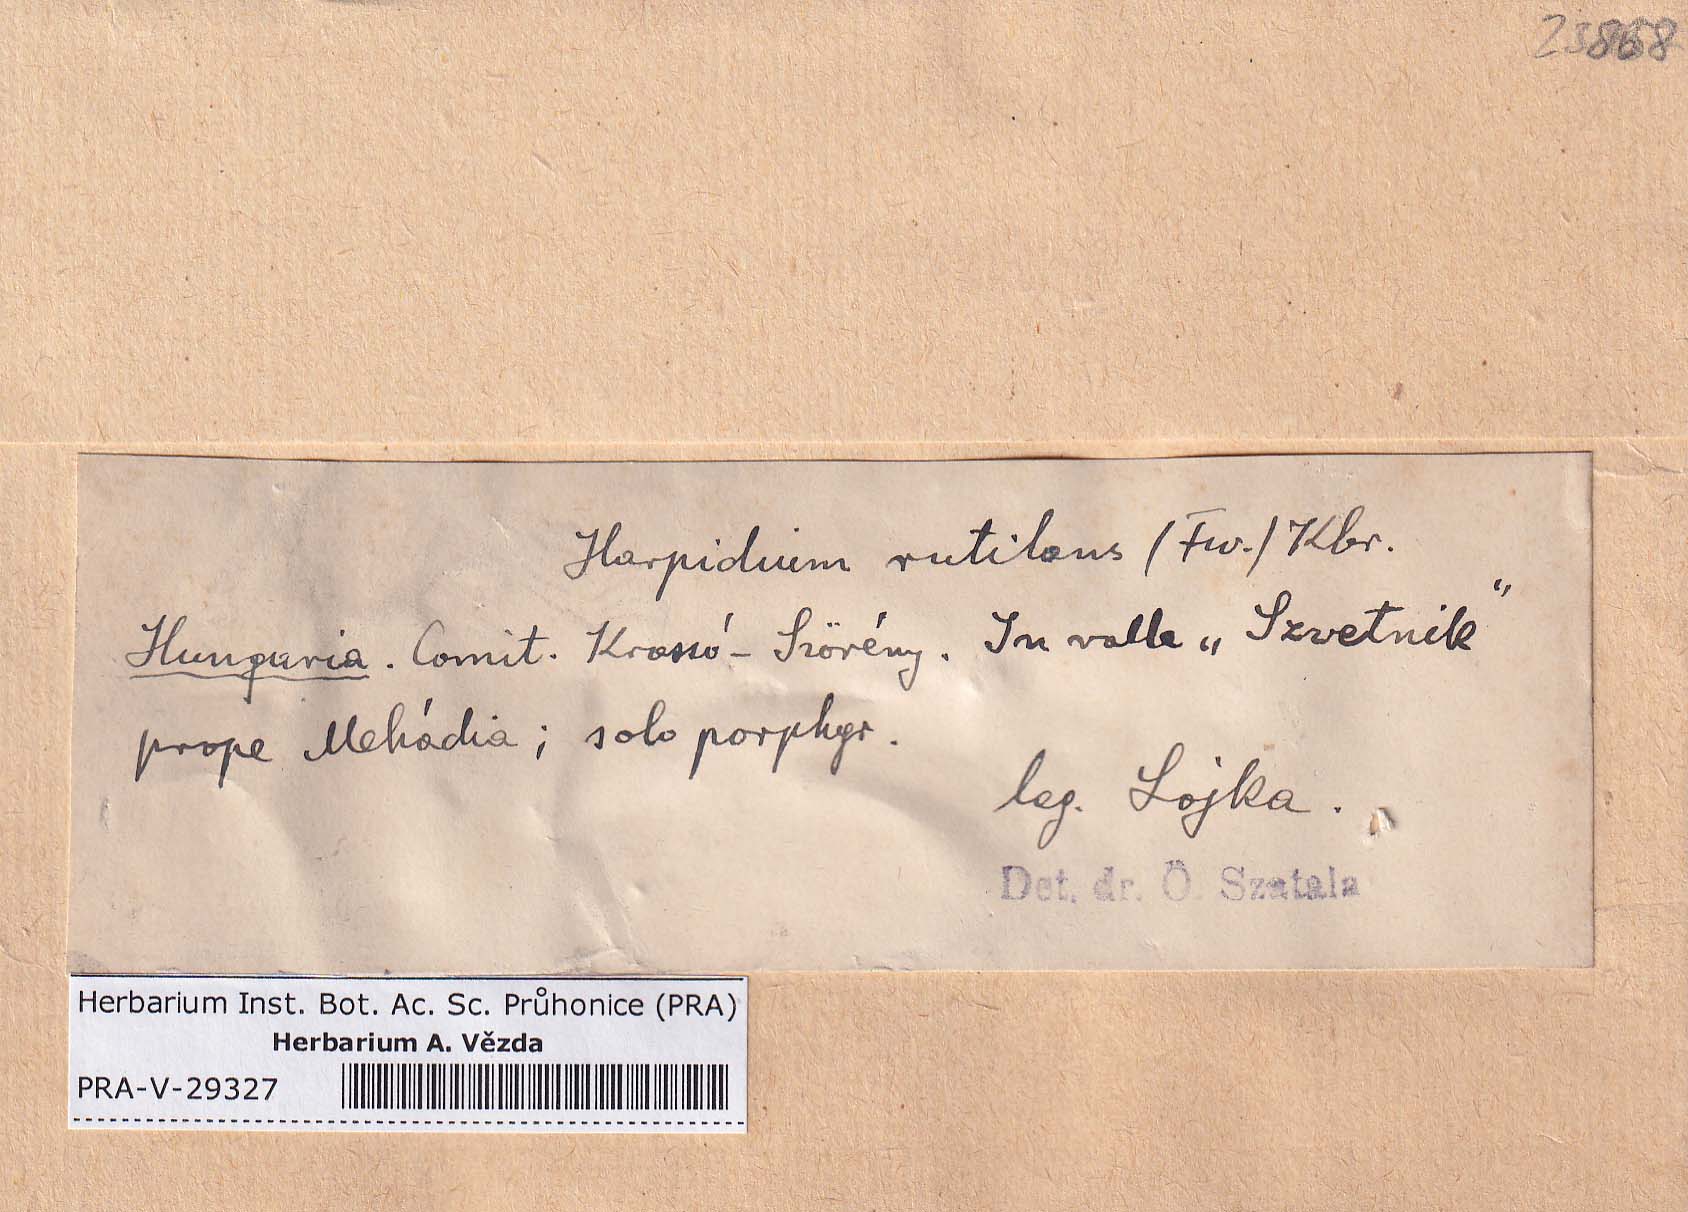 23868
Harpidium rutilans (Fw.) Kbr.
Hungaria. Comit. Krassó-Szörény. In valle „Szvetnik“
prope Mehádia; solo porphyr.
leg. Lojka.
Det. dr. Ö. Szatala
Herbarium Inst. Bot. Ac. Sc. Průhonice (PRA)
Herbarium A. Vězda
PRA-V-29327